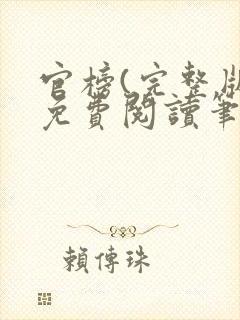 官榜(完整版
免費閱讀筆
賴傳珠